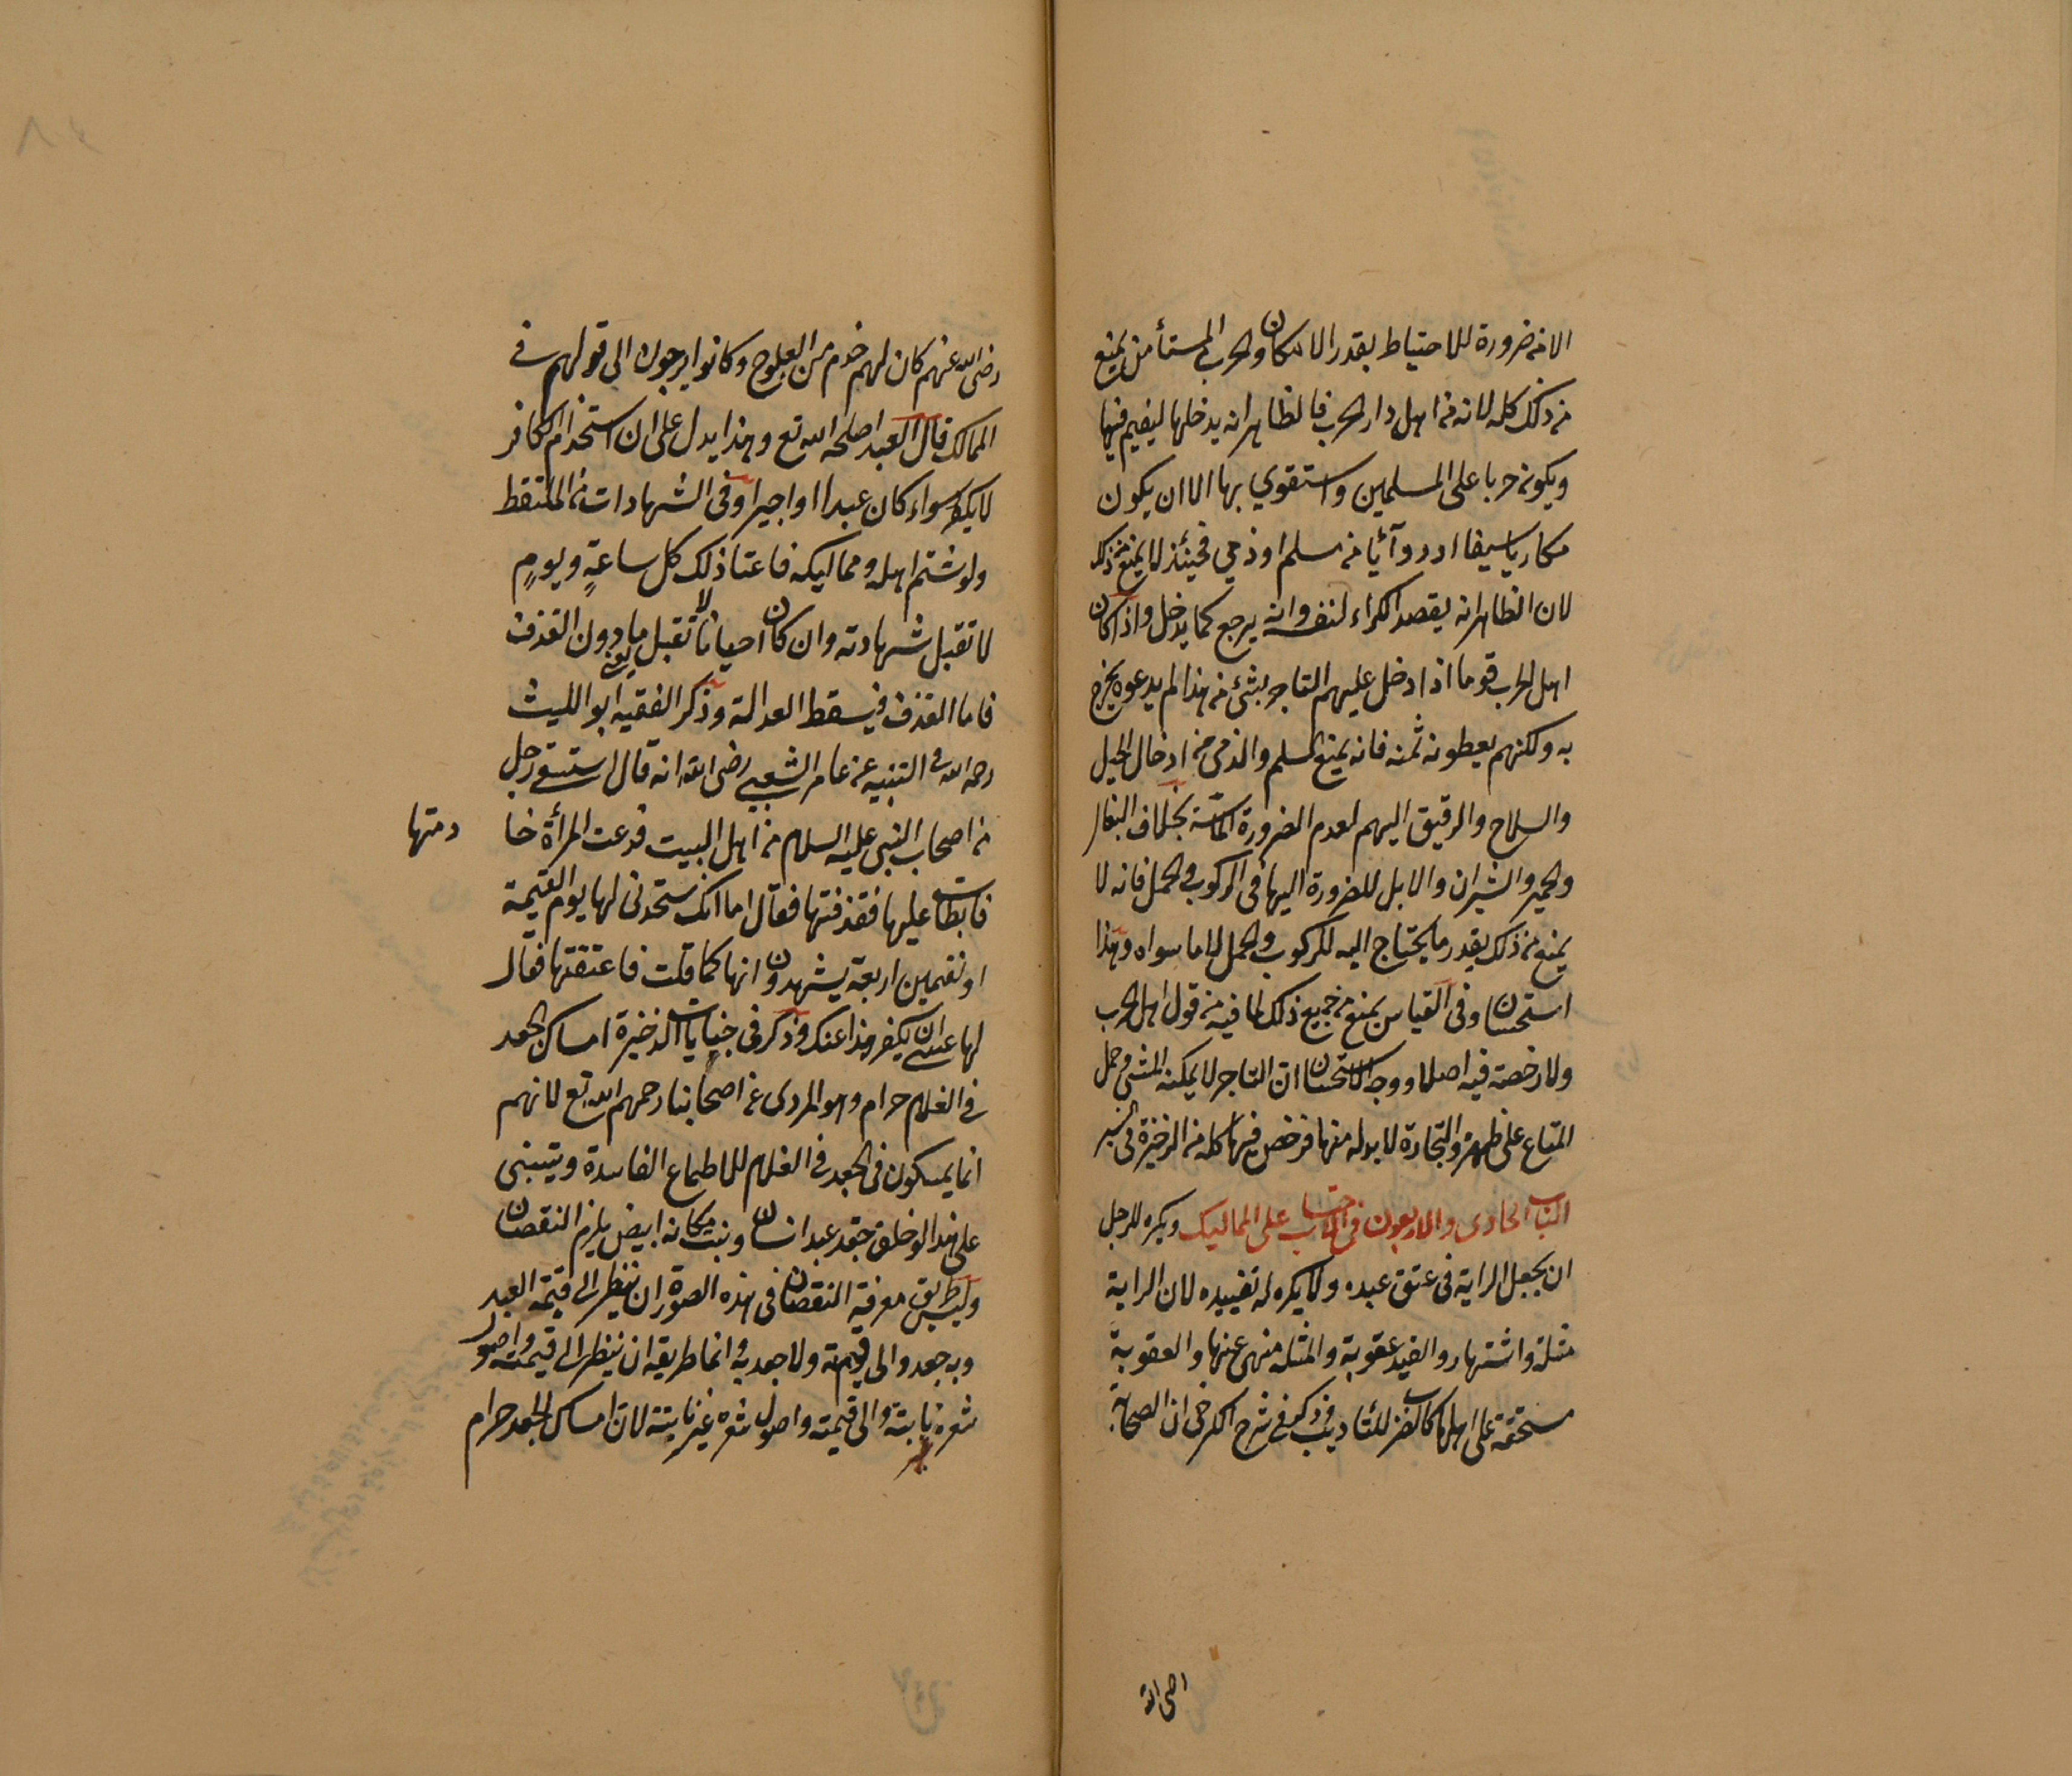 الا من ضرورة للاحتياط بقدر الامكان والحربي المستأمن يمنع
من ذلك كله لانه من اهل دار الحرب فالظاهر انه يدخلها ليقيم فيها
ويكون حربا على المسلمين واستقوي بها الا ان يكون
مكاريا سيفا او دوآبا من مسلم او ذمي فحينئذ لا يمنع من ذلك
لان الظاهر انه يقصد الكراء لنفسه وانه يرجع كما يدخل واذا كان
اهل الحرب قوما اذا دخل عليهم التاجر بشئ من هذا لم يدعوه يخرج
به ولكنهم يعطونه ثمنه فانه يمنع المسلم والذمي من ادخال الخيل
والسلاح والرقيق اليهم لعدم الضرورة الماسّة بخلاف البغال
والحمير والثيران والابل للضرورة اليها في الركوب والحمل فانه لا
يمنع من ذلك بقدر ما يحتاج اليه للركوب والحمل لا ما سواه وهذا
استحسان وفي القياس يمنع من جميع ذلك لما فيه من قول اهل الحرب
ولا رخصة فيه اصلا ووجه الاستحسان ان التاجر لا يمكنه المشي وحمل
المتاع على ظهره والتجارة لا بد له منها فرخص فيها كله من الذخيرة في السير
الباب الحادى والاربعون في الاحتساب على المماليك ويكره للرجل
ان يجعل الراية في عنق عبده ولا يكره له تقييده لان الراية
مثلة واشتهار والقيد عقوبة والمثلة منهى عنها والعقوبة
مستحقة على اهلها كالضرب للتأديب وذكر في شرح الكرخى ان الصحابة
رضى الله عنهم كان لهم خدم من العلوج وكانوا يرجعون الى قولهم في
الممالك قال العبد اصلحه الله تع وهذا يدل على ان استخدام الكافر
لا يكره سواء كان عبدا او اجيرا وفى الشهادات من الملتقط
ولو شتم اهله ومماليكه فاعتاد ذلك كل ساعةٍ ويومٍ
لا تقبل شهادته وان كان احيانا تقبل ما دون القذف
فاما القذف فيسقط العدالة وذكر الفقيه ابو الليث
رحمه الله في التنبيه عن عامر الشعبي رضى الله انه قال استسقى رجل
من اصحاب النبي عليه السلام من اهل البيت فدعت المرأة خا
دمتها
فابطات عليها فقذفتها فقال اما انك ستحدنى لها يوم القيمة
او تقيمين اربعة يشهدون انها كما قلت فاعتقتها فقال
لها عسى ان يكفر هذا عنك وذكر في جنايات الذخيرة امساك الجعد
في الغلام حرام وهو المروى عن اصحابنا رحمهم الله تع لانهم
انما يمسكون في الجعد في الغلام للاطماع الفاسدة ويبتنى
على هذا لو حلق جعد عبد انسان ونبت مكانه ابيض يلزم النقصان
وليس طريق معرفة النقصان في هذه الصورة ان ينظر الى قيمة العبد
وبه جعد والى قيمته ولا جعد به وانما طريقه ان ينظر الى قيمته واصول
شعره نابتة والى قيمته واصول شعره غير نابتة لان امساك الجعد حرام